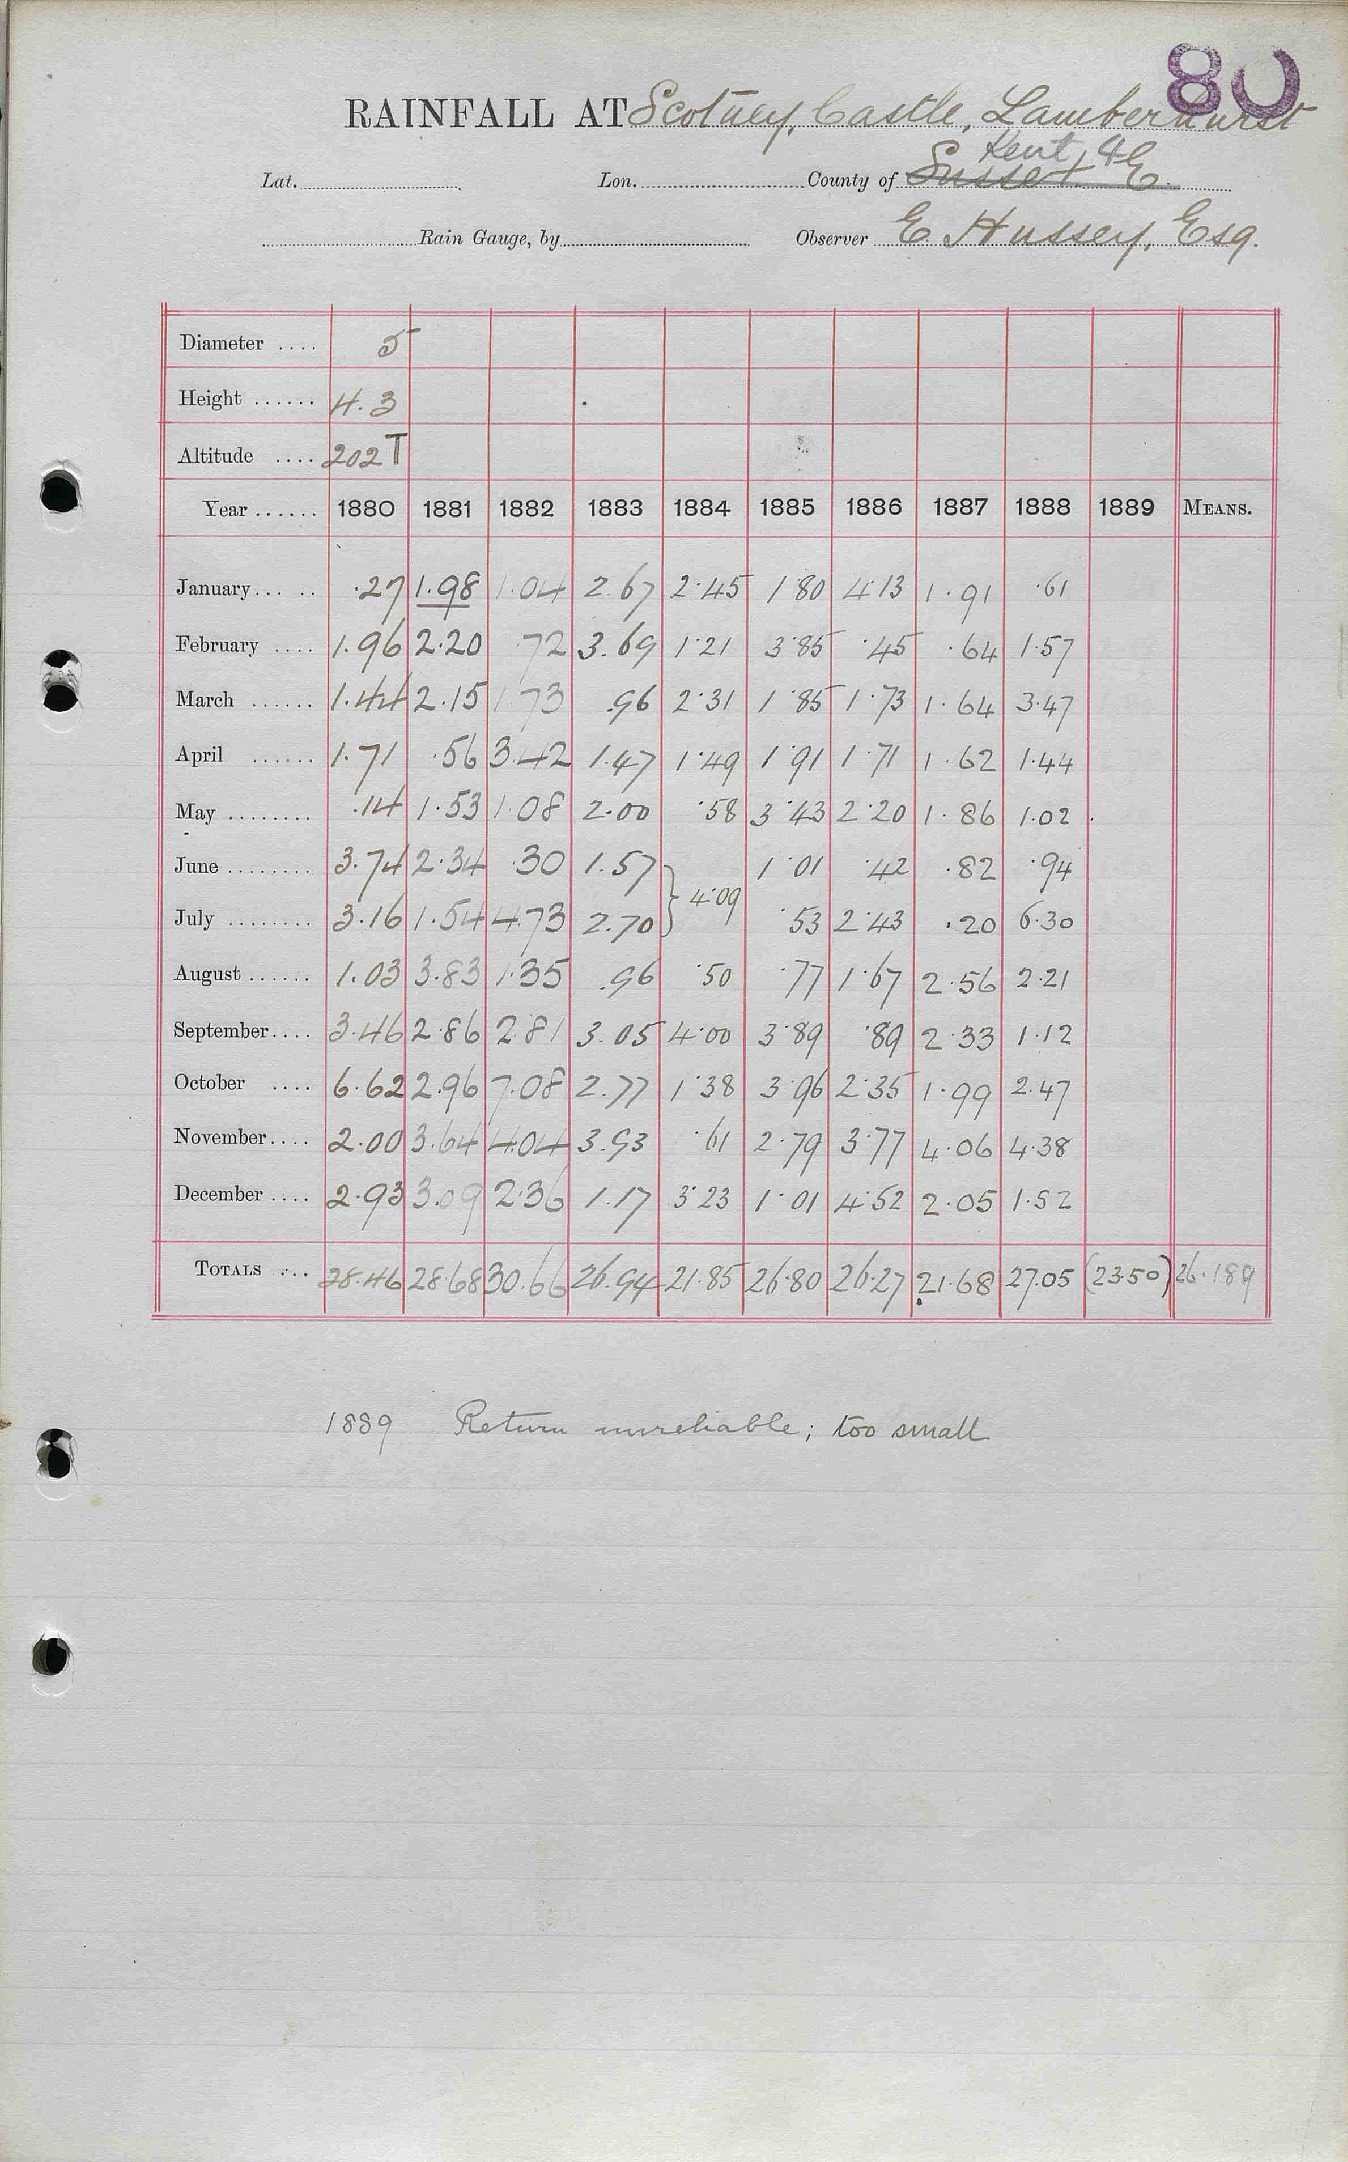 80
RAINFALL AT Scotney Castle, Lamberhurst
Kent
Lat. Lon. County of Sussex E
Rain Gauge, by Observer E. Hussey, Esq.
Diameter .... 5
Height ...... 4.3
Altitude .... 202 T
Year ...... 1880 1881 1882 1883 1884 1885 1886 1887 1888 1889 MEANS.
January... .. .27 1.98 1.04 2.67 2.45 1.80 4.13 1.91 .61
February .... 1.96 2.20 .72 3.69 1.21 3.85 .45 .64 1.57
March ...... 1.44 2.15 1.73 .96 2.31 1.85 1.73 1.64 3.47
April ...... 1.71 .56 3.42 1.47 1.49 1.91 1.71 1.62 1.44
May ........ .14 1.53 1.08 2.00 .58 3.43 2.20 1.86 1.02
June ........ 3.74 2.34 .30 1.57 } 4.09 1.01 .42 .82 .94
July ........ 3.16 1.54 4.73 2.70 .53 2.43 .20 6.30
August ...... 1.03 3.83 1.35 .96 .50 .77 1.67 2.56 2.21
September.... 3.46 2.86 2.81 3.05 4.00 3.89 .89 2.33 1.12
October .... 6.62 2.96 7.08 2.77 1.38 3.96 2.35 1.99 2.47
November.... 2.00 3.64 4.04 3.93 .61 2.79 3.77 4.06 4.38
December .... 2.93 3.09 2.36 1.17 3.23 1.01 4.52 2.05 1.52
TOTALS ... 28.46 28.68 30.66 26.94 21.85 26.80 26.27 21.68 27.05 (23.50) 26.189
1889 Return unreliable; too small